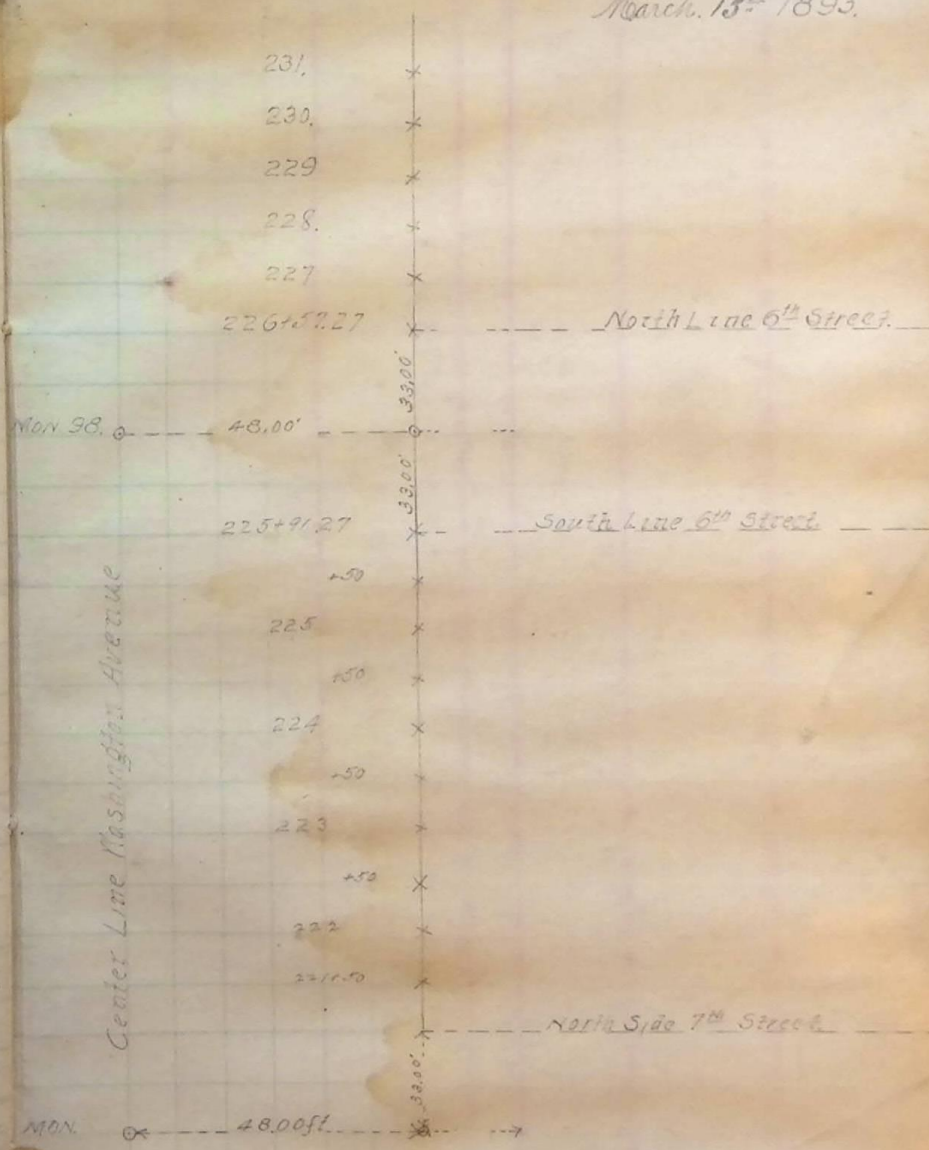 March. 15th 1893.
231.
230.
229
228.
227
226+57.27 North Line 6th Street.
33.00'
MON 98. 48.00'
33.00'
225+91.27 South Line 6th Street
+50
225
+50
224
+50
223
+50
222
221+50
North Side 7th Street
33.00'
MON. 48.00ft.
Center Line Washington Avenue